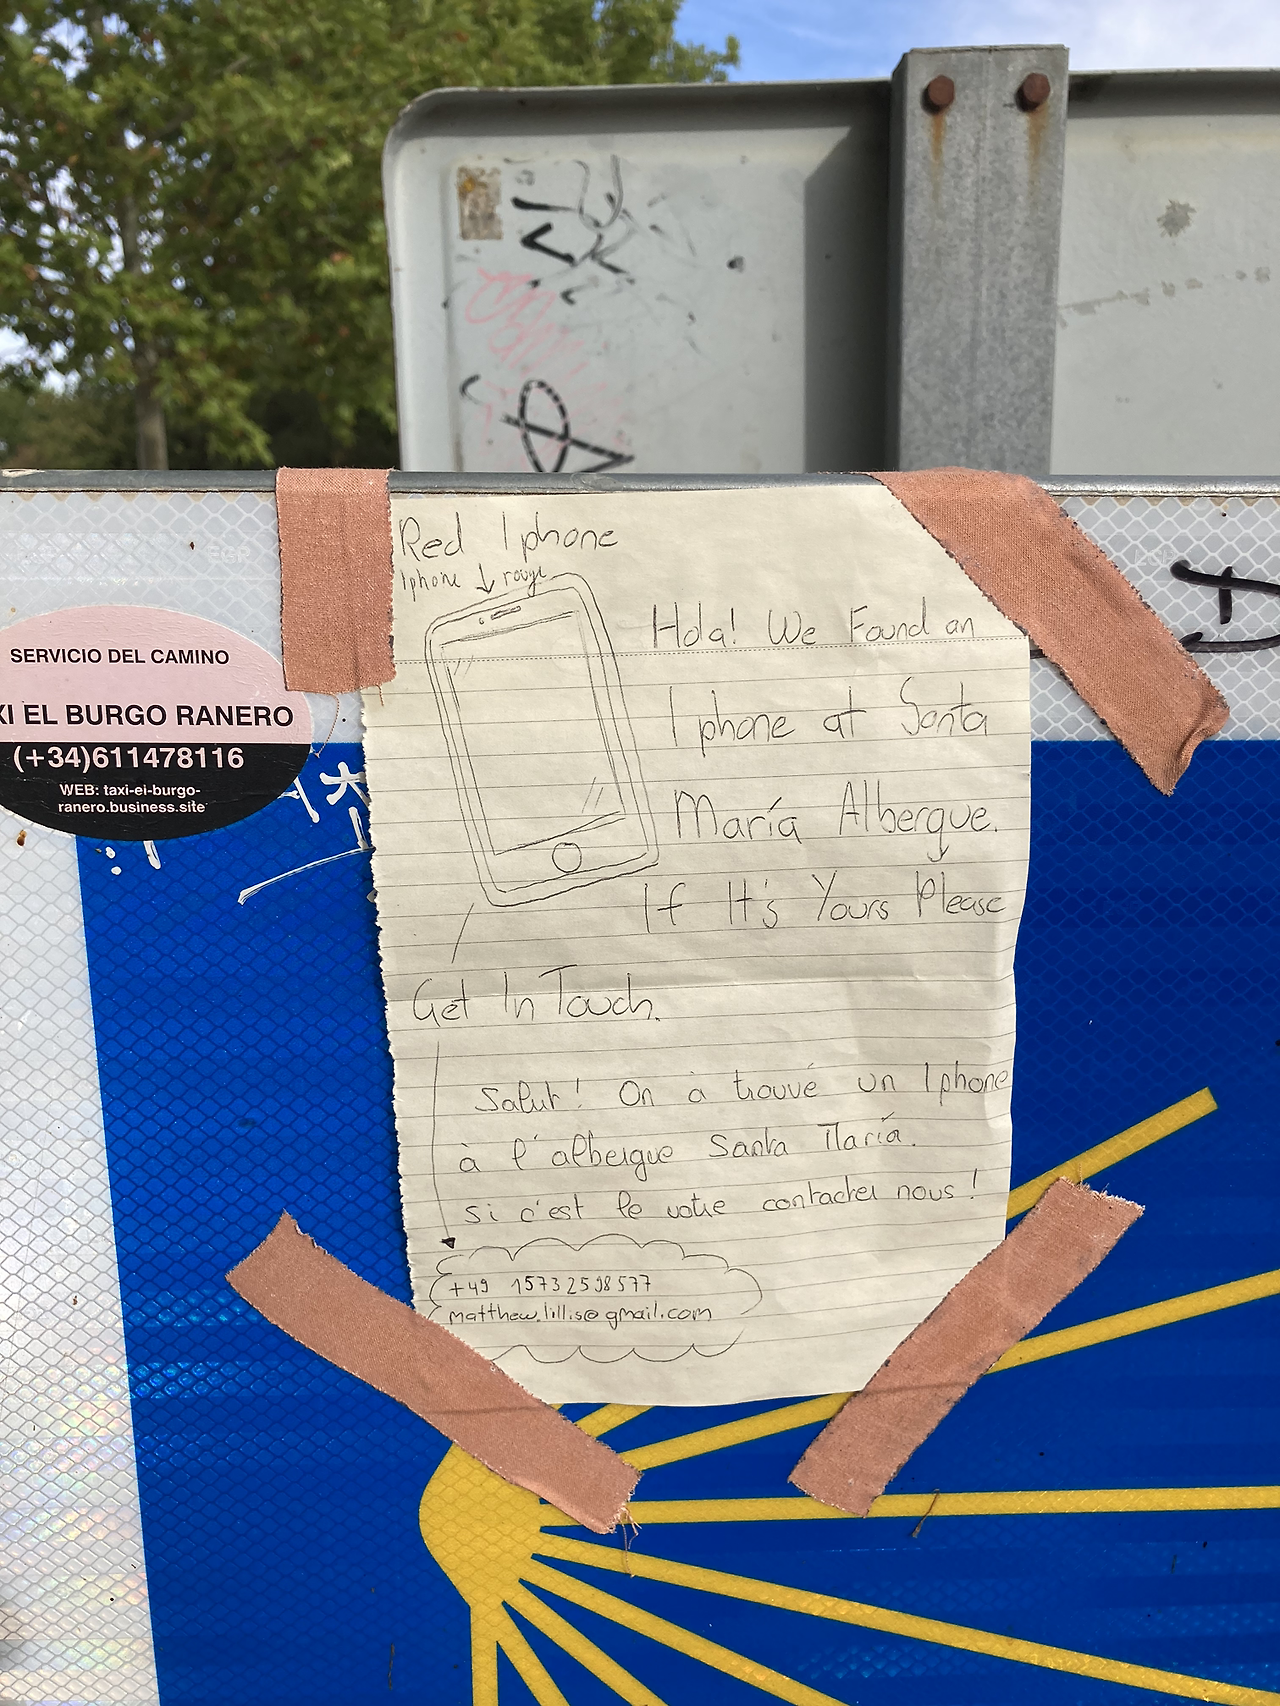 Red Iphone
Iphone rouge
Hola! We Found an
Iphone at Santa
María Albergue.
If It's Yours Please
Get In Touch.
Salut! On à trouvé un Iphone
à l'albergue Santa María.
si c'est le votre contacter nous!
+49 15732598577
matthew.lillis@gmail.com
SERVICIO DEL CAMINO
XI EL BURGO RANERO
(+34)611478116
WEB: taxi-el-burgo-
ranero.business.site